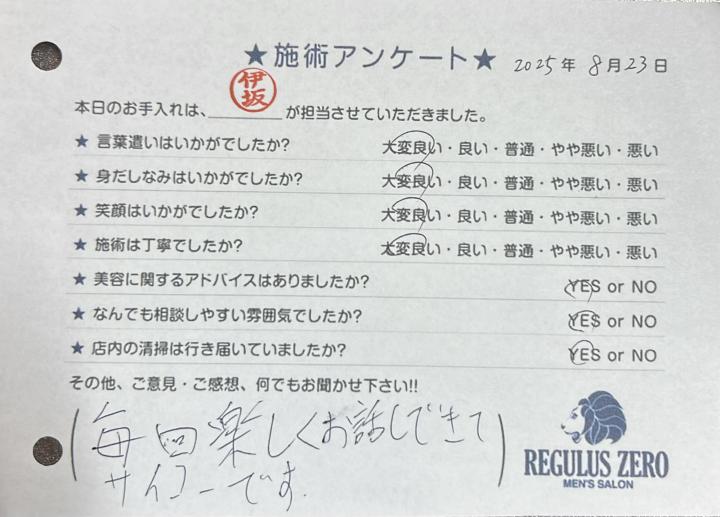 ★施術アンケート★ 2025年 8月23日
伊坂
本日のお手入れは、________が担当させていただきました。
★ 言葉遣いはいかがでしたか? 大変良い・良い・普通・やや悪い・悪い
★ 身だしなみはいかがでしたか? 大変良い・良い・普通・やや悪い・悪い
★ 笑顔はいかがでしたか? 大変良い・良い・普通・やや悪い・悪い
★ 施術は丁寧でしたか? 大変良い・良い・普通・やや悪い・悪い
★ 美容に関するアドバイスはありましたか? YES or NO
★ なんでも相談しやすい雰囲気でしたか? YES or NO
★ 店内の清掃は行き届いていましたか? YES or NO
その他、ご意見・ご感想、何でもお聞かせ下さい!!
毎回楽しくお話しできて
サイコーです.
REGULUS ZERO
MEN'S SALON